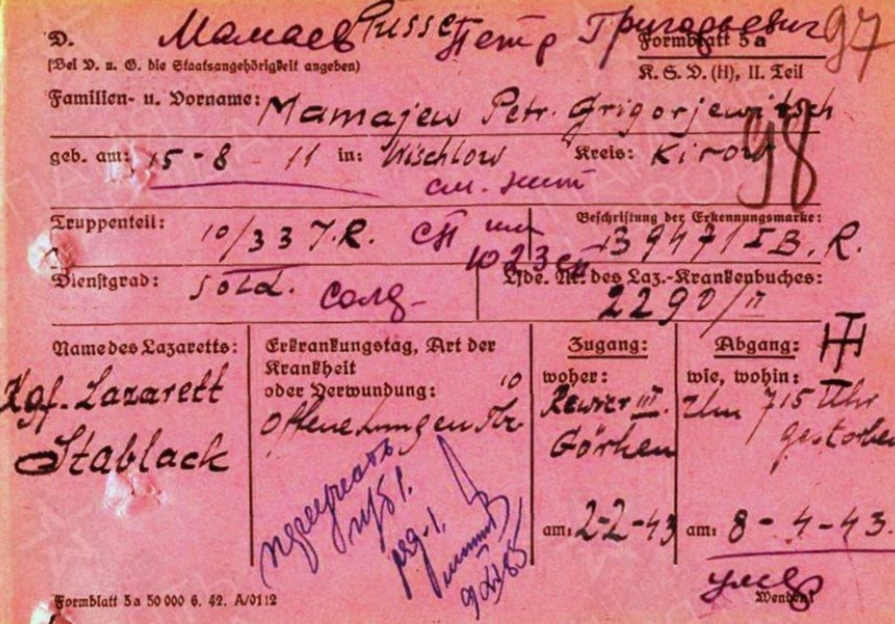 D. Мамаев Russe Петр Григорьевич 97
Formblatt 5a
(Bei D. u. G. die Staatsangehörigkeit angeben)
K. S. D. (H), II. Teil
Familien- u. Vorname: Mamajew Petr. Grigorjewitsch
98
geb. am: 15-8 11 in: Wischlow Kreis: Kirow
Truppenteil: 10/337 J.R. СП
Beschriftung der Erkennungsmarke:
39471 I B. R.
1023 сп
Dienstgrad: Sold. солд-
Lfde. Nr. des Laz.-Krankenbuches:
2290/II
Name des Lazaretts:
Kgf. Lazarett
Stablack
Erkrankungstag, Art der
Krankheit
oder Verwundung: 10
offene Lungen Tbc
Zugang:
woher:
Revier III.
Görken
am: 2-2-43
Abgang:
wie, wohin:
Um 715 Uhr
gestorben
am: 8-4-43
умер
Formblatt 5a 50 000 6. 42. A/0112
Wenden!